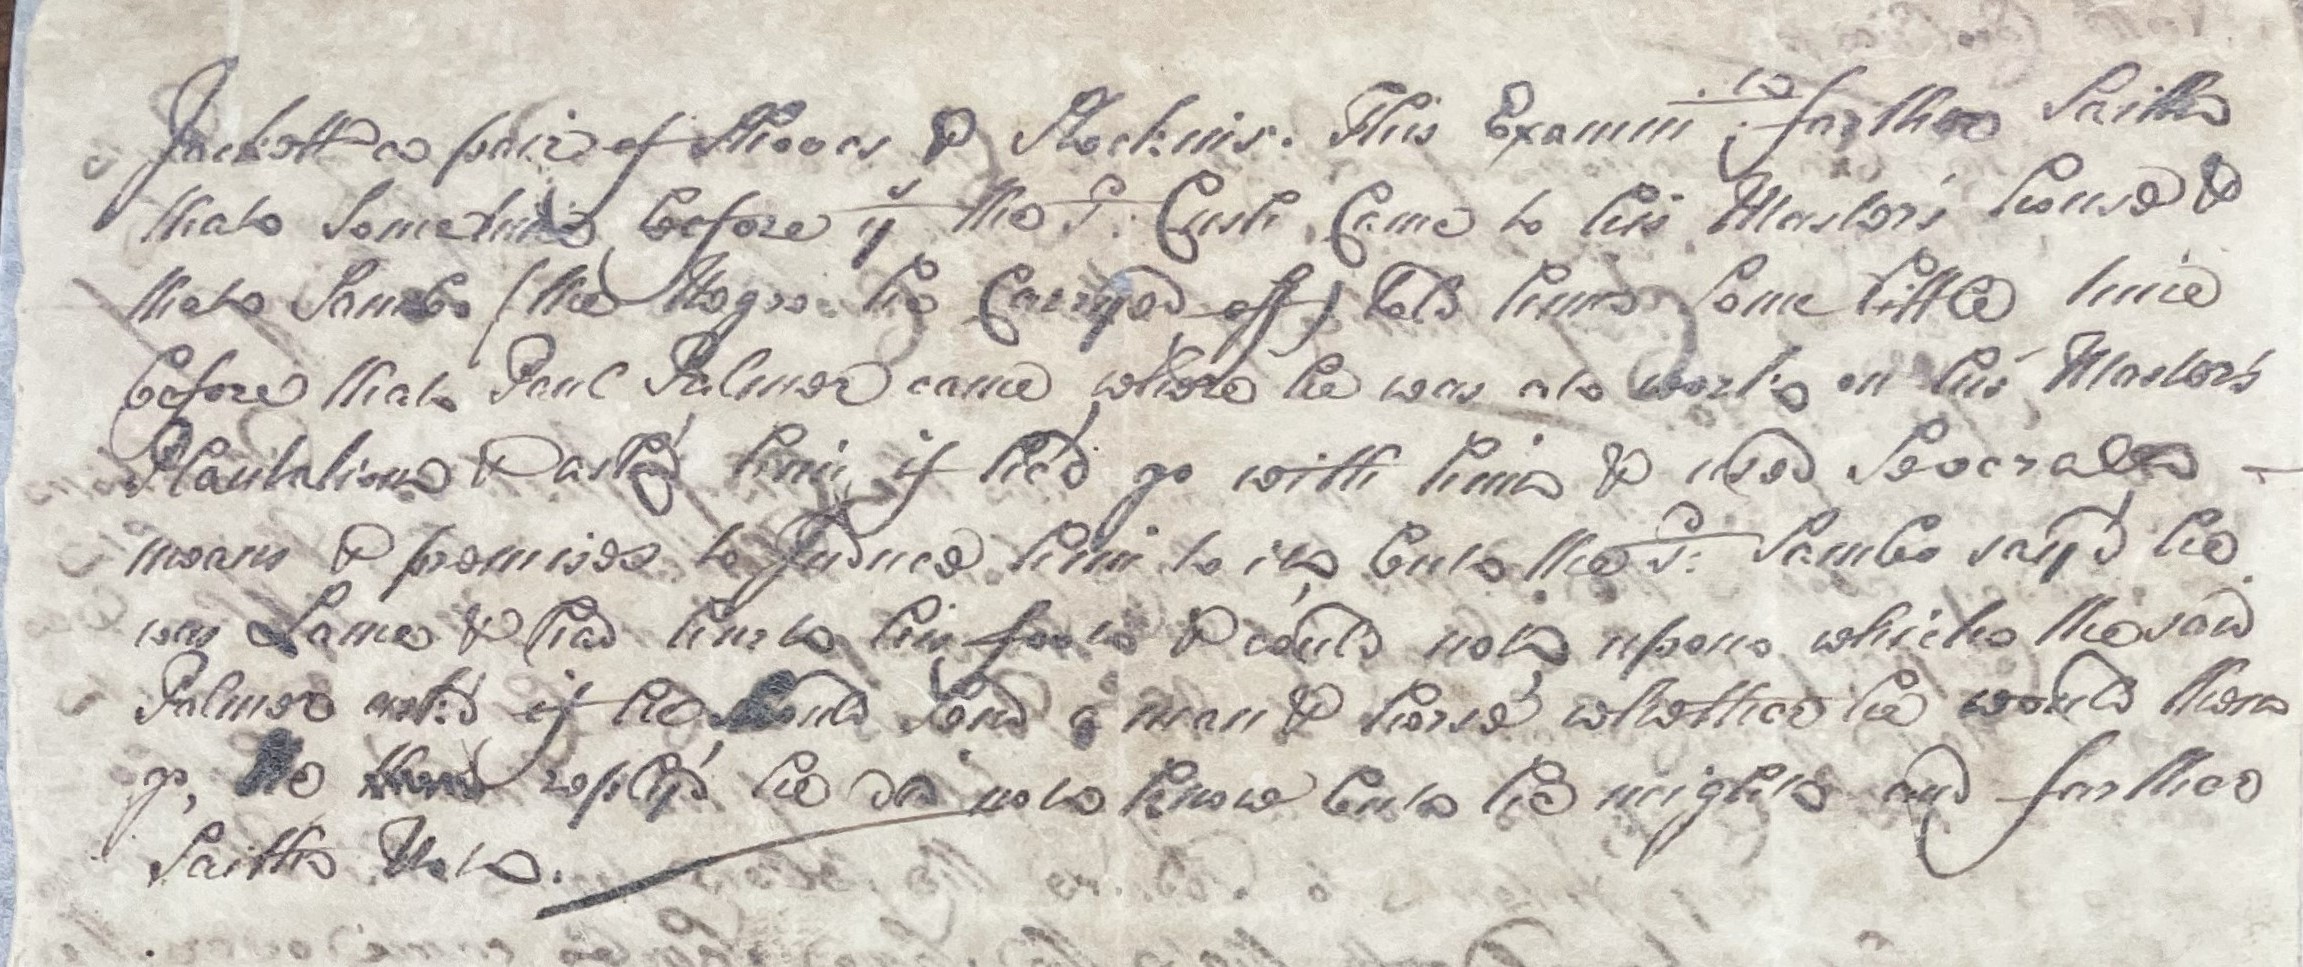 Jackett a pair of Shooes & Stockins. This Examin:t farther Saith
that sometime before y:t the S:d Cush Came to his Masters house &
that Sambo (the Negro he Carryed off) told him some little time
before that Paul Palmer came where he was at work on his Masters
Plantation & ask'd him if he'd go with him & used Severall —
means & promises to Induce him to it but the S:d Sambo say'd he
was Lame & had hurt his foot & could not upon which the said
Palmer ask'd if he should send a man & horse whether he would then
go, he reply'd he did not know but he might and farther
Saith Not.